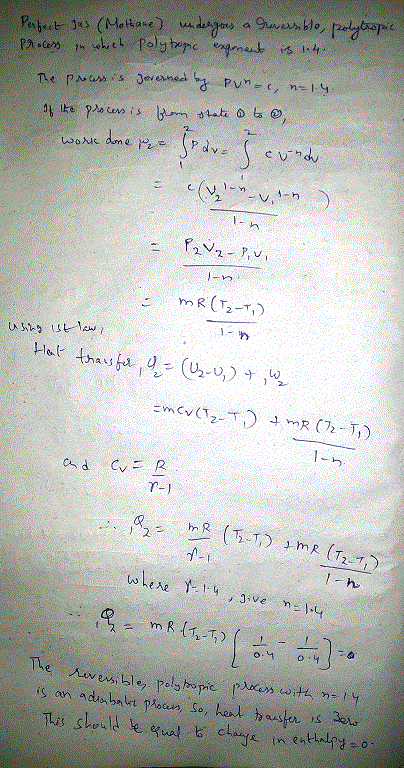 Perfect gas (Methane) undergoes a reversible, polytropic
process in which polytropic exponent is 1.4.
The process is governed by PVⁿ = c, n = 1.4.
If the process is from state ① to ②,
work done ₁W₂ = ∫₁² P dv = ∫₁² c v⁻ⁿ dv
= c (V₂¹⁻ⁿ - V₁¹⁻ⁿ) / 1-n
= P₂V₂ - P₁V₁ / 1-n
= mR (T₂-T₁) / 1-n
using 1st law,
Heat transfer, ₁Q₂ = (U₂-U₁) + ₁W₂
= mCv (T₂-T₁) + mR (T₂-T₁) / 1-n
and Cv = R / γ-1
∴ ₁Q₂ = mR / γ-1 (T₂-T₁) + mR (T₂-T₁) / 1-n
where γ = 1.4, give n = 1.4
∴ ₁Q₂ = mR (T₂-T₁) [ 1/0.4 - 1/0.4 ] = 0
The reversible, polytropic process with n = 1.4
is an adiabatic process, so, heat transfer is zero
This should be equal to change in enthalpy = 0.